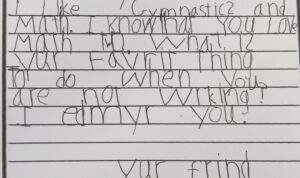 I like Gymnastics and
Math. I know that you love
Math to. What is
yur favrit thing
to do when you
are not wrking?
I edmyr you.
yur frind